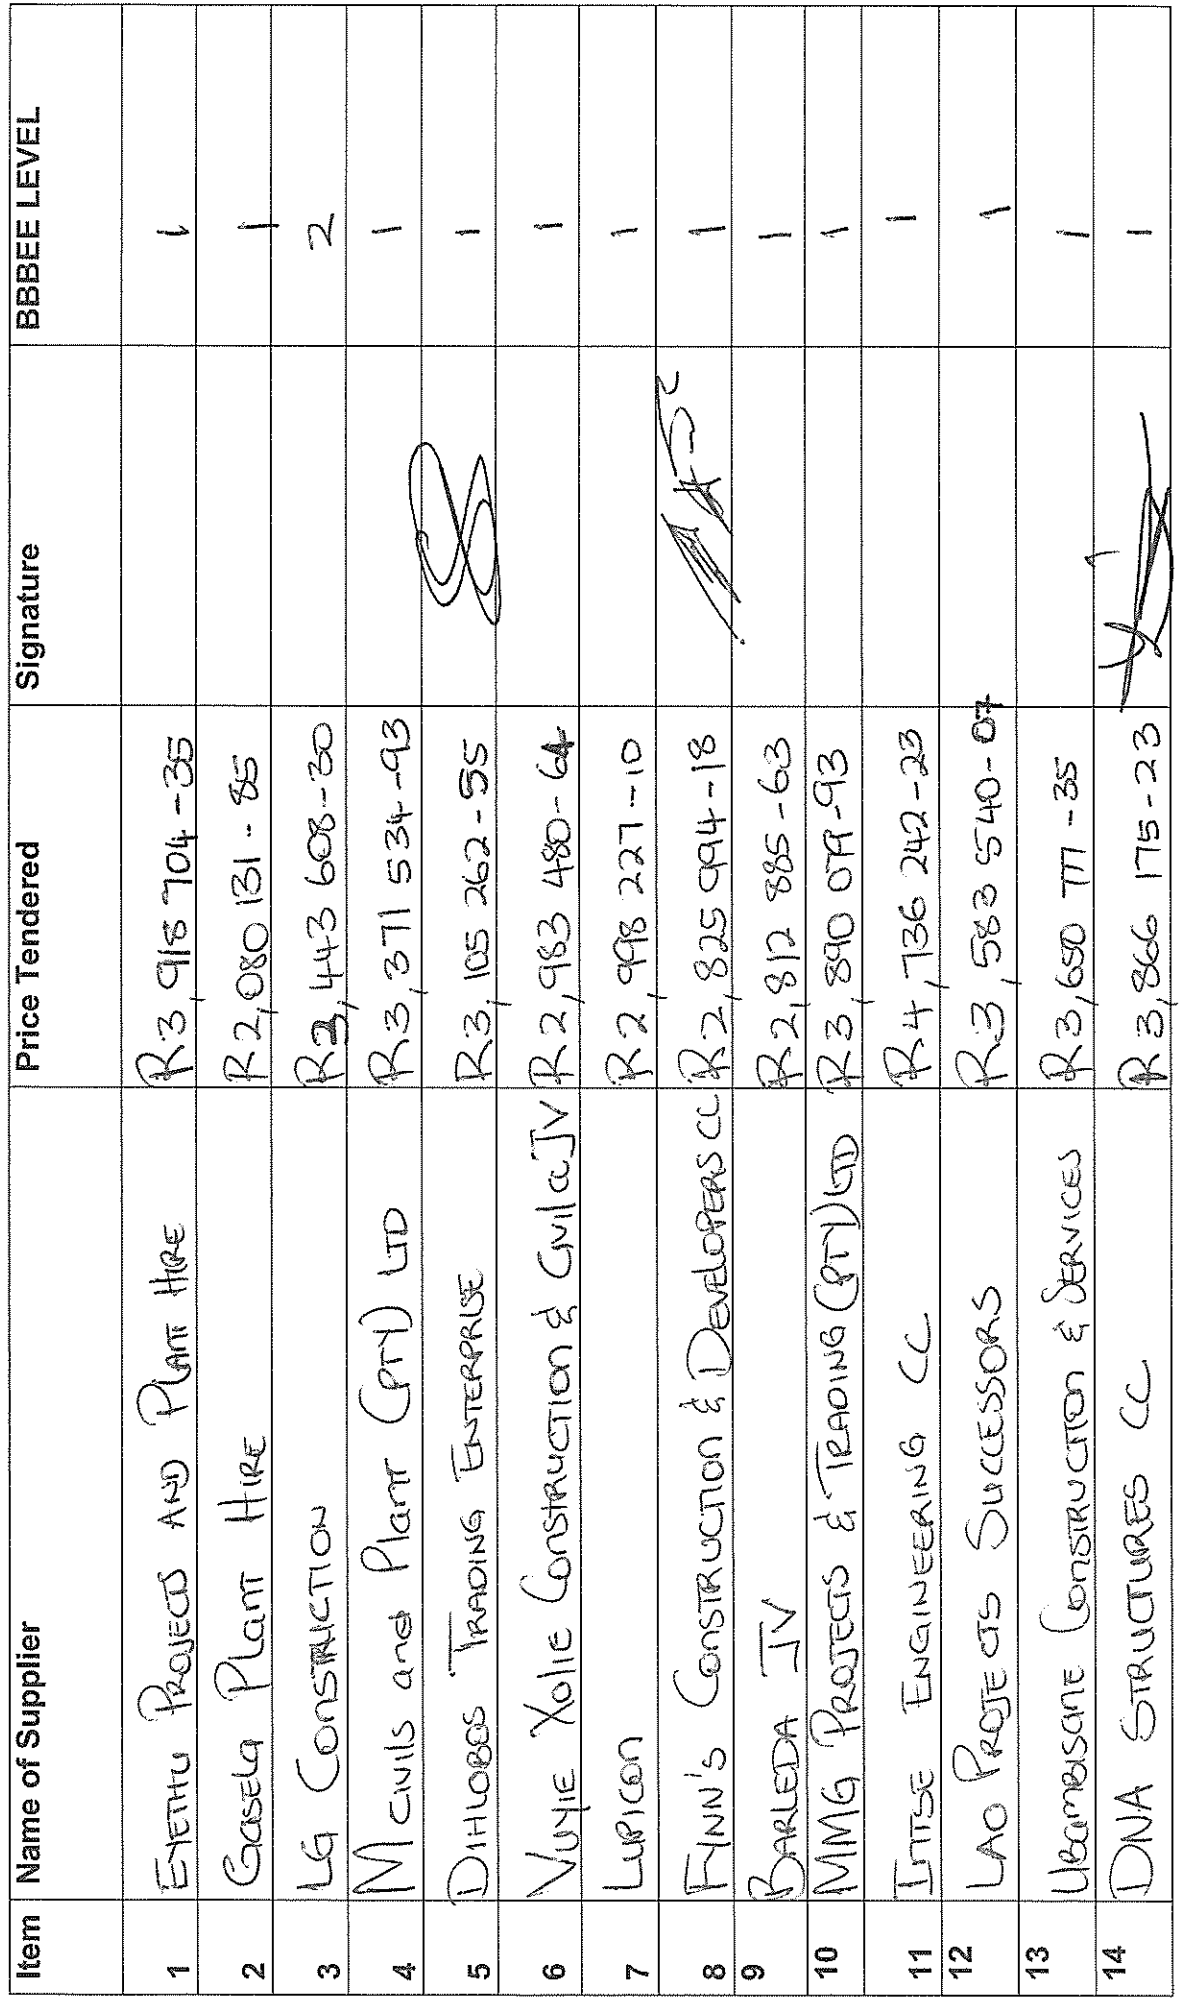 Item Name of Supplier Price Tendered Signature BBBEE LEVEL
1 EYETHU PROJECTS AND PLANT HIRE R3,918 704-35 1
2 GASELA PLANT HIRE R2,080 131-85 1
3 LG CONSTRUCTION R3,443 608-30 2
4 M CIVILS and PLANT (PTY) LTD R3,371 534-93 1
5 DIHLOBOS TRADING ENTERPRISE R3,105 262-55 1
6 VUYIE XOLIE CONSTRUCTION & CIVILA JV R2,983 480-64 1
7 LUPICON R2,998 227-10 1
8 FYNN'S CONSTRUCTION & DEVELOPERS CC R2,825 994-18 1
9 BARLEDA JV R2,812 885-63 1
10 MMG PROJECTS & TRADING (PTY) LTD R3,890 079-93 1
11 INTSE ENGINEERING CC R4,736 242-23 1
12 LAO PROJECTS SUCCESSORS R3,583 540-07 1
13 UBAMBISANE CONSTRUCTION & SERVICES R3,650 777-35 1
14 DNA STRUCTURES CC R3,866 175-23 1